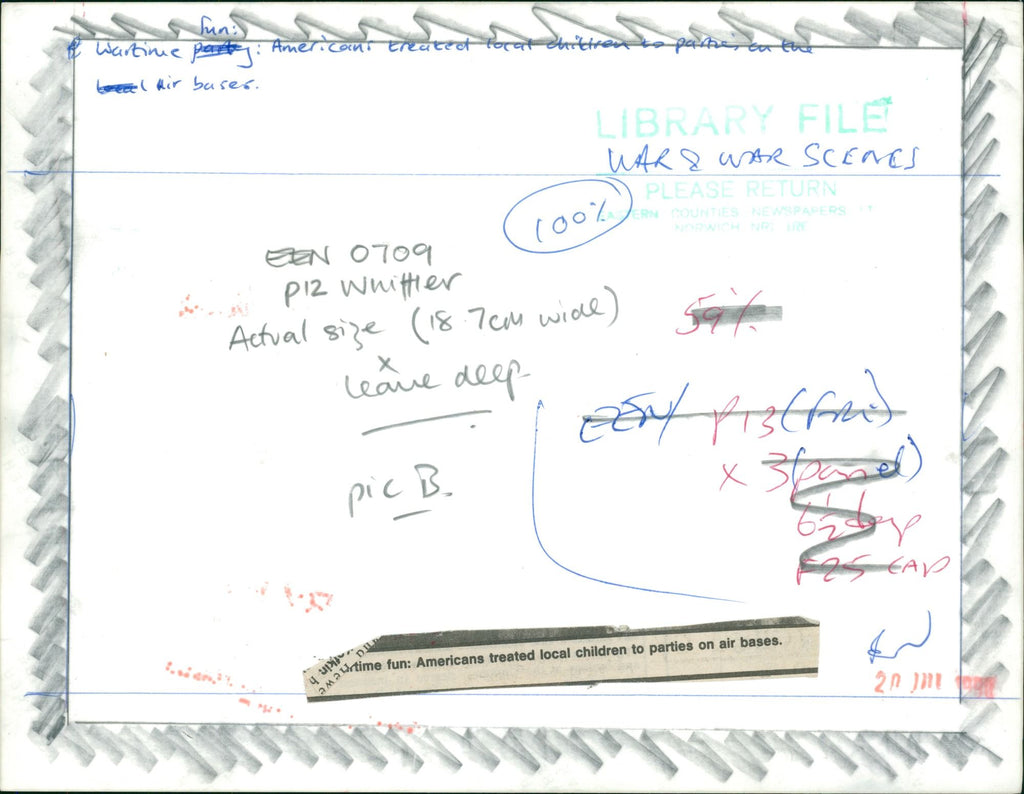 fun:
Wartime party: Americans treated local children to parties on the
local Air bases.
LIBRARY FILE
WAR & WAR SCENES
PLEASE RETURN
EASTERN COUNTIES NEWSPAPERS LT
NORWICH NR1 1RE
100%
EEN 0709
p12 Whittler
Actual size (18.7cm wide)
x
leave deep
59%
EEN/ P13 (Fri)
x 3 (panel)
6½ deep
F25 CAP
pic B.
rtime fun: Americans treated local children to parties on air bases.
20 JUL